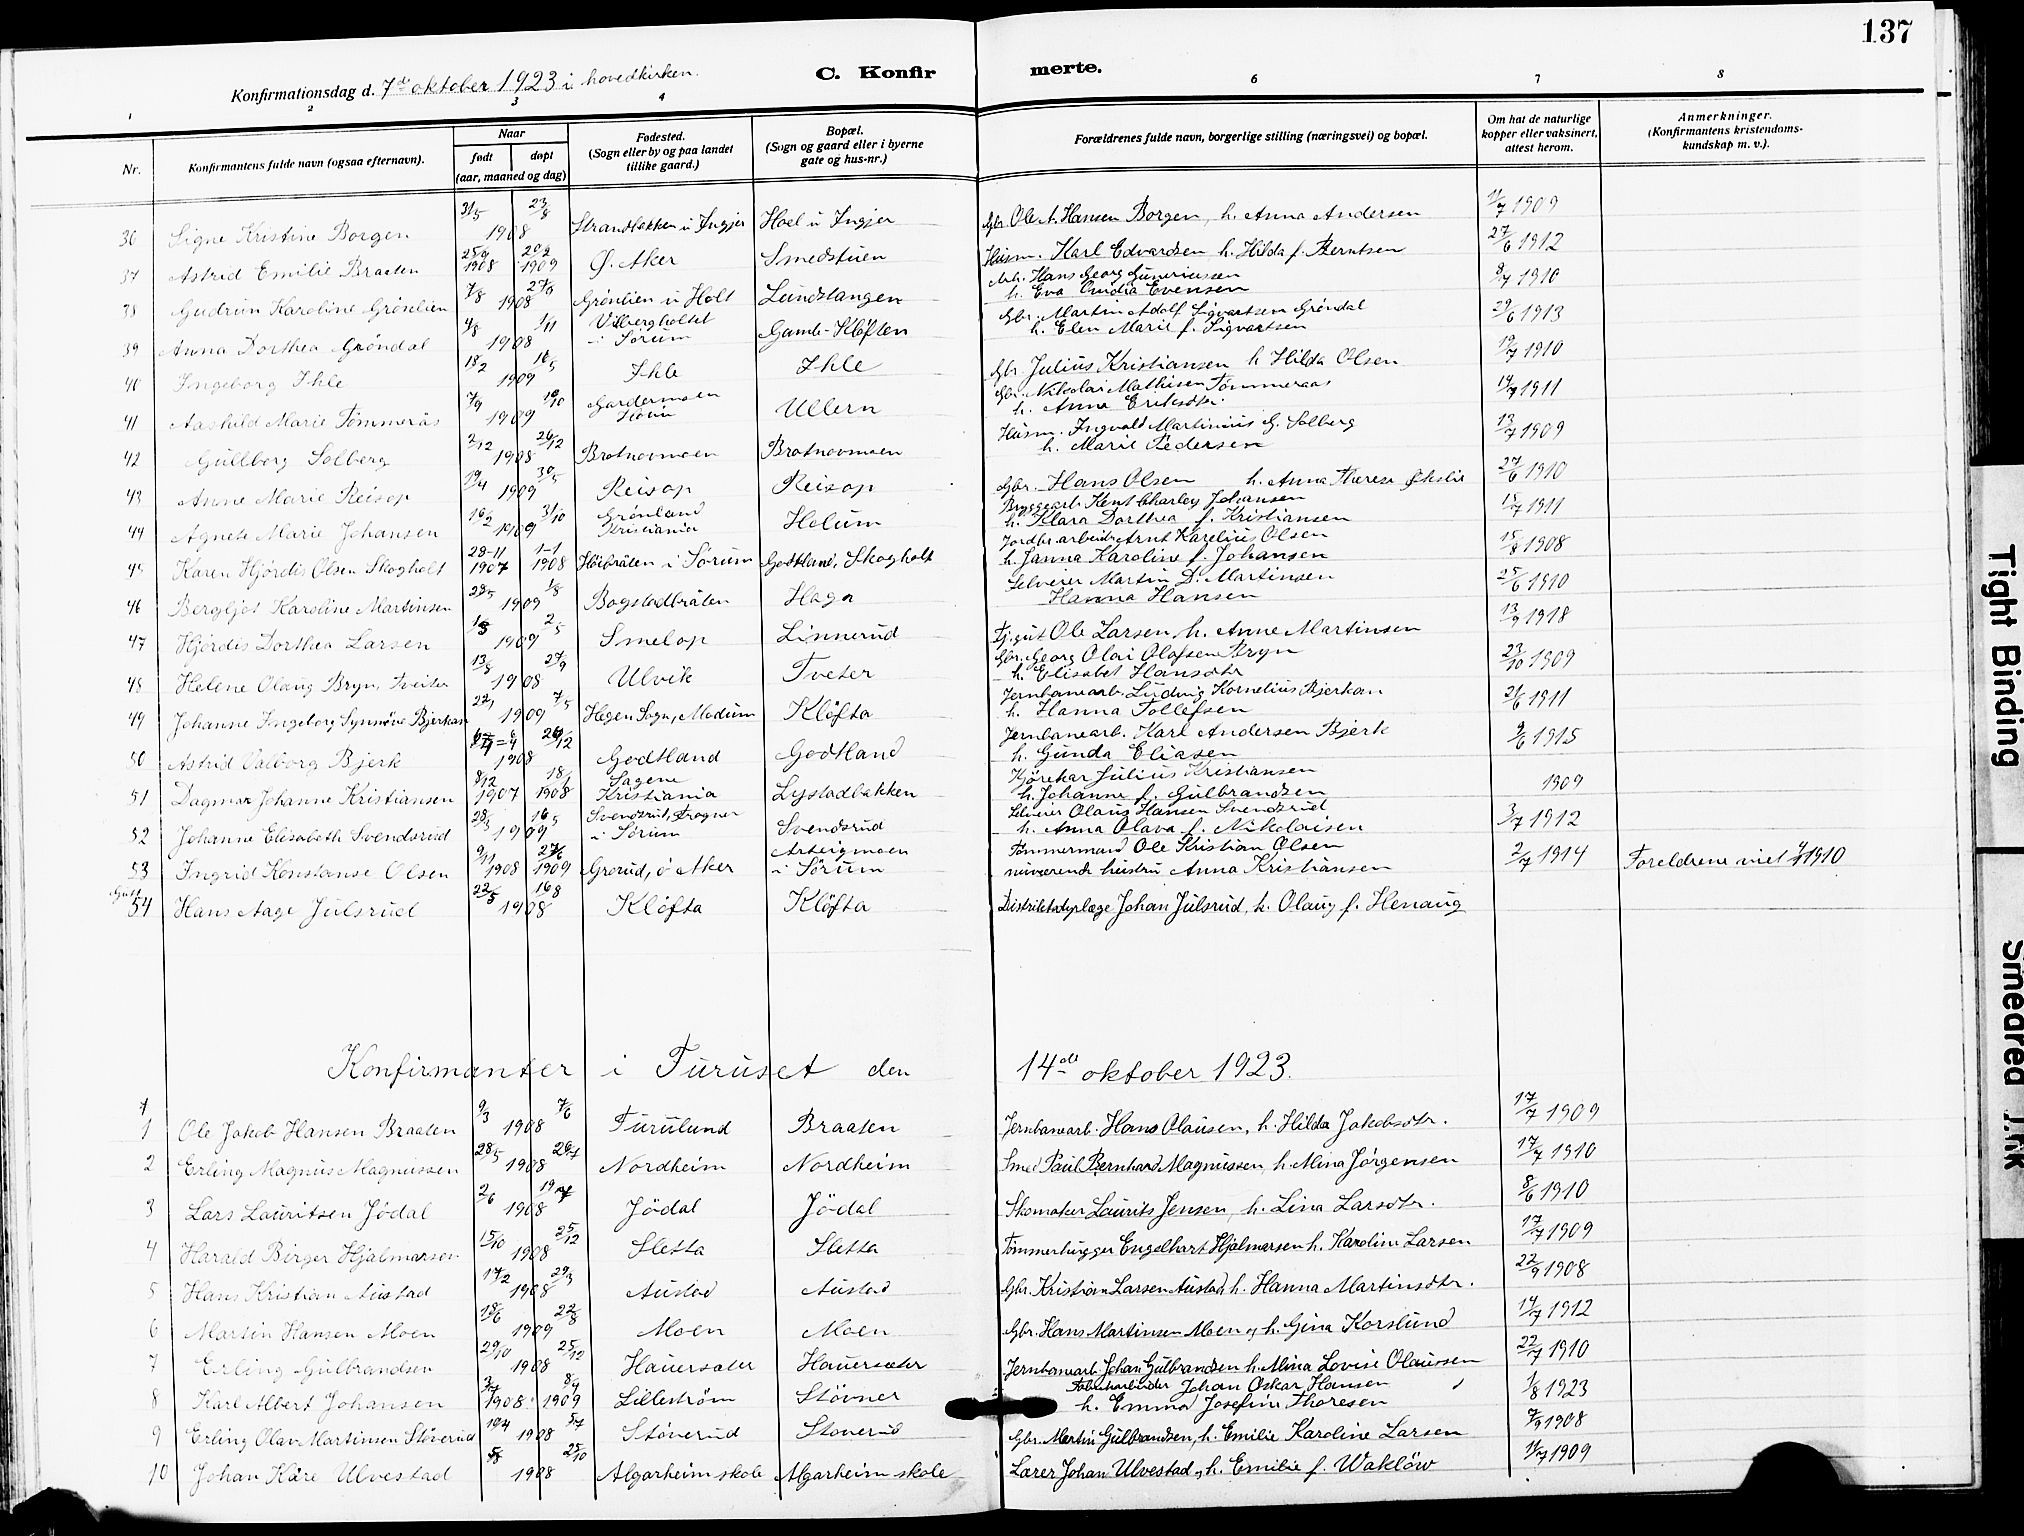 137
Konfirmationsdag d. 7de oktober 1923 i hovedkirken.
C. Konfir merte.
1 2 3 4 6 7 8
Nr.
Konfirmantens fulde navn (ogsaa efternavn).
Naar
født døpt
(aar, maaned og dag)
Fødested.
(Sogn eller by og paa landet
tillike gaard.)
Bopæl.
(Sogn og gaard eller i byerne
gate og hus-nr.)
Forældrenes fulde navn, borgerlige stilling (næringsvei) og bopæl.
Om hat de naturlige
kopper eller vaksinert,
attest herom.
Anmerkninger.
(Konfirmantens kristendoms-
kundskap m. v.).
36 Signe Kristine Borgen 31/5 23/8 1908 Strandbakken i Ingjer Hoel i Ingjer Gbr. Ole A. Hansen Borgen, h. Anna Andersen 1909
37 Astrid Emilie Braaten 25/9 1908 20/2 1909 Ø. Aker Smedstuen Husm. Karl Edvardsen h. Hilda f. Berntsen 27/6 1912
38 Gudrun Karoline Grönlien 7/8 27/9 1908 Grönlien i Holt Lundstangen Arb. Hans Georg Guneriussen
h. Eva Ovidia Evensen 9/7 1910
39 Anna Dorthea Gröndal 4/8 1/11 1908 Vilbergholtet
i Sörum Gamle-Klöften Gbr. Martin Adolf Sigvartsen Gröndal
h. Elen Marie f. Sigvartsen 29/6 1913
40 Ingeborg Ihle 18/2 16/5 1909 Ihle Ihle Gbr. Julius Kristiansen h. Hilda Olsen 19/7 1910
41 Aashild Marie Tömmerås 7/9 10/10 1909 Gardermoen Ullern Gbr. Nikolai Mathisen Tömmeraas
h. Anna Eriksdtr. 14/7 1911
42 Gullborg Solberg 2/12 26/12 1908 Brotnovmoen Brotnovmoen Husm. Ingvald Martinius G. Solberg
h. Marie Pedersen 13/7 1909
43 Anne Marie Reisop 19/4 30/5 1909 Reisop Reisop Gbr. Hans Olsen h. Anna Therese Ökslie 27/6 1910
44 Agnete Marie Johansen 16/2 31/10 1909 Grönland
Kristiania Holum Byggearb. Kent Charley Johansen
h. Klara Dorthea f. Kristiansen 15/7 1911
45 Karen Hjördis Olsen Skogholt 28-11 1907 1-1 1908 Höibråten i Sörum Godtland, Skogholt Jordbr. arbeider Arnt Karelius Olsen
h. Janna Karoline f. Johansen 15/8 1908
46 Bergljot Karoline Martinsen 28/5 1/8 1909 Bogstadbråten Haga Selveier Martin D. Martinsen
Hanna Hansen 25/6 1910
47 Hjördis Dorthea Larsen 1/3 2/5 1909 Smelop Linnerud Tj.gut Ole Larsen, h. Anne Martinsen 13/9 1918
48 Helene Olaug Bryn, Tveiter 13/8 27/9 1908 Ulvik Tveter Gbr. Georg Olai Olafsen Bryn
h. Elisabet Hansdtr 23/10 1909
49 Johanne Ingeborg Synnöve Bjerkan 22/1 7/5 1909 Hegen Sogn, Modum Klöfta Jernbanearb. Ludvig Kornelius Bjerkan
h. Hanna Tollefsen 21/6 1911
50 Astrid Valborg Bjerk 26/12 1908 Godtland Godtland Jernbanearb. Karl Andersen Bjerk
h. Gunda Eliasen 9/6 1915
51 Dagmar Johanne Kristiansen 8/12 1907 18/1 1908 Sagene
Kristiania Lystadbakken Kjörekar Julius Kristiansen
h. Johanne f. Gulbrandsen 1909
52 Johanne Elisabeth Svendsrud 28/3 16/5 1909 Svendsrud, Frogner
i Sörum Svendsrud Selveier Olaus Hansen Svendsrud
h. Anna Olava f. Nikolaisen 3/7 1912
53 Ingrid Konstanse Olsen 9/11 1908 27/6 1909 Grorud, ö Aker Arteigmoen
i Sörum Tömmermand Ole Kristian Olsen
nuværende hustru Anna Kristiansen 2/7 1914 Foreldrene viet 1910
Gutt
54 Hans Aage Julsrud 22/5 16/8 1908 Klöfta Klöfta Distriktsdyrlæge Johan Julsrud, h. Olaug f. Henaug
Konfirmanter i Furuset den 14de oktober 1923.
1 Ole Jakob Hansen Braaten 9/3 7/6 1908 Furulund Braaten Jernbanearb. Hans Olausen, h. Hilda Jakobsdtr. 17/7 1909
2 Erling Magnus Magnussen 28/5 26/7 1908 Nordheim Nordheim Smed Paul Bernhard Magnussen h. Mina Jörgensen 17/7 1910
3 Lars Lauritsen Jödal 2/6 19/7 1908 Jödal Jödal Skomaker Laurits Jensen, h. Lina Larsdtr. 8/6 1910
4 Harald Birger Hjalmarsen 15/10 25/12 1908 Sletta Sletta Tömmerhugger Engelhart Hjalmarsen h. Karoline Larsen 17/7 1909
5 Hans Kristian Austad 17/2 29/3 1908 Austad Austad Gbr. Kristian Larsen Austad h. Hanna Martinsdtr. 22/9 1908
6 Martin Hansen Moen 18/6 22/8 1909 Moen Moen Gbr. Hans Martinsen Moen og h. Gina Korslund 14/7 1912
7 Erling Gulbrandsen 29/10 25/12 1908 Hauersæter Hauersæter Jernbanearb. Johan Gulbrandsen h. Mina Lovise Olaussen 22/7 1910
8 Karl Albert Johansen 1908 8/9 1909 Lilleström Stövner Fabrikarbeider Johan Oskar Hansen
h. Emma Josefine Thoresen 1/8 1923
9 Erling Olav Martinsen Stöverud 19/4 5/7 1908 Stöverud Stoverud Gbr. Martin Gulbrandsen, h. Emilie Karoline Larsen 7/9 1908
10 Johan Kåre Ulvestad 5/8 25/10 1908 Algarheim skole Algarheim skole Lærer Johan Ulvestad, h. Emilie f. Waklöw 1909
Tight Binding
Smeared Ink